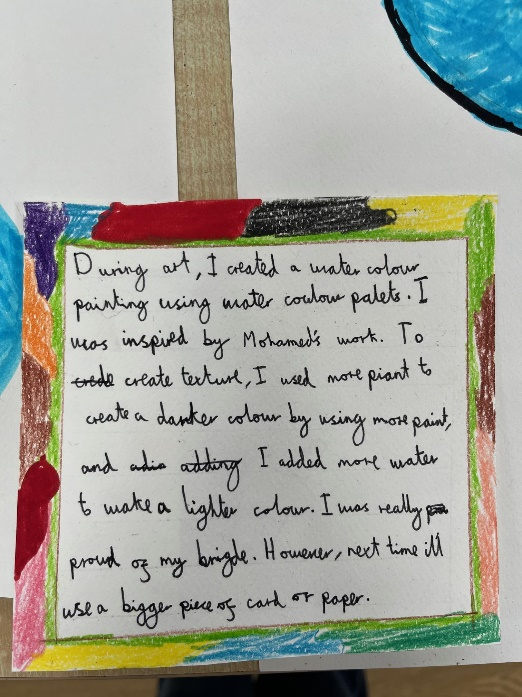 During art, I created a water colour
painting using water coulour palets. I
was inspired by Mohamed's work. To
crede create texture, I used more piant to
create a darker colour by using more paint,
and adding I added more water
to make a lighter colour. I was really
proud of my brigde. However, next time i'll
use a bigger piece of card or paper.